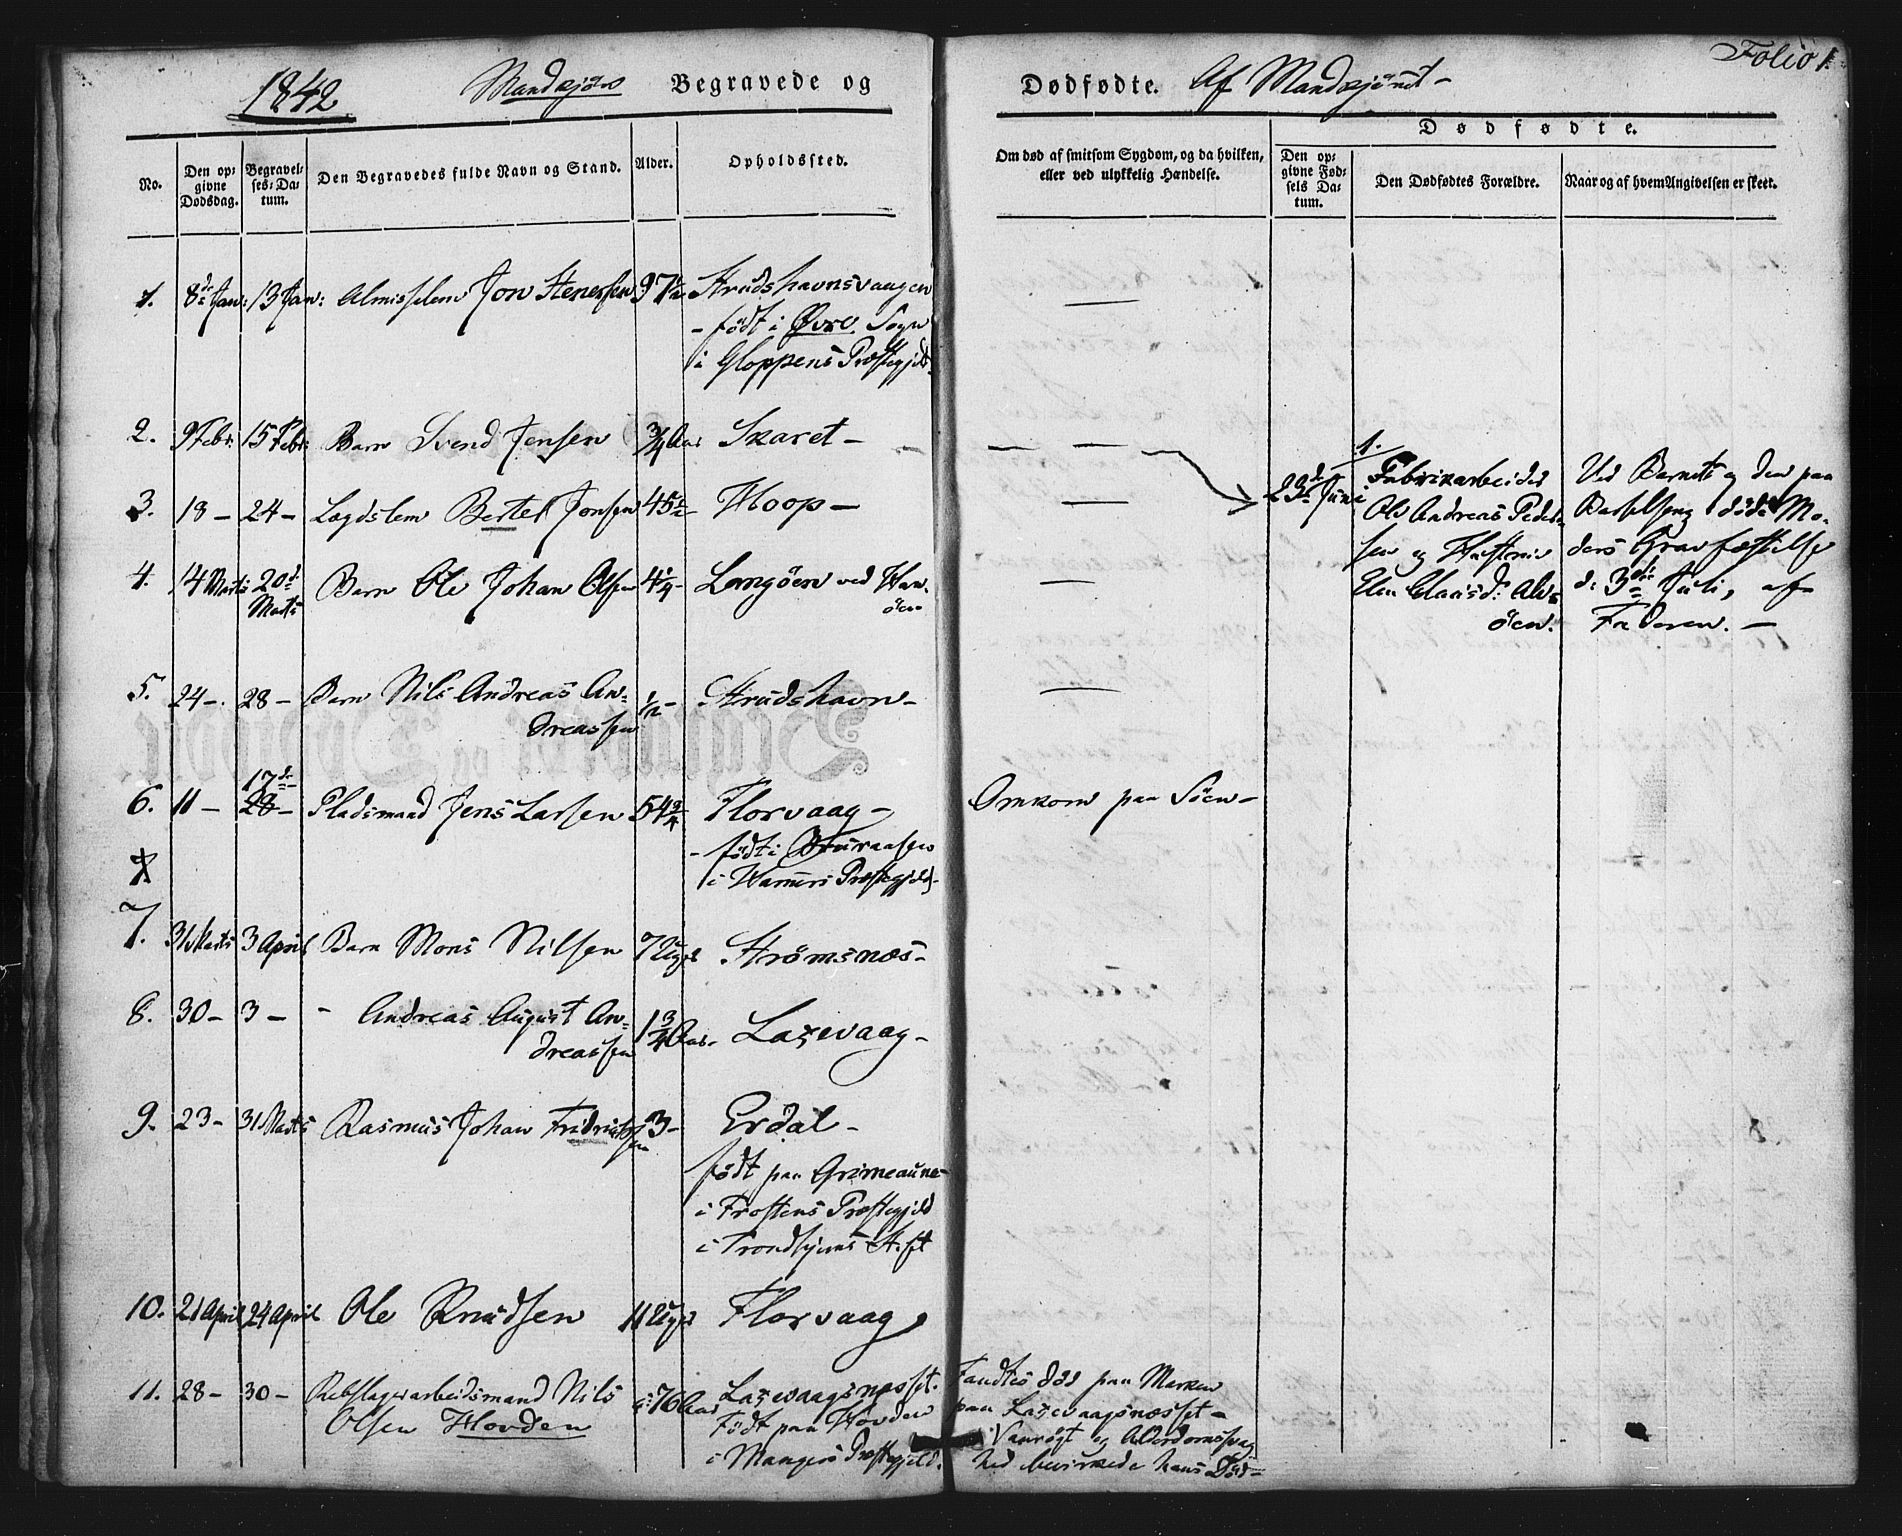 1842
Mandkjøn
Begravede og
Dødfødte.
Af Mandkjønnet-
Folio 1.
No.
Den opgivne Dødsdag.
Begravelses-Datum.
Den Begravedes fulde Navn og Stand.
Alder.
Opholdssted.
Om død af smitsom Sygdom, og da hvilken,
eller ved ulykkelig Hændelse.
Dødfødte.
Den opgivne Fødsels Datum.
Den Dødfødtes Forældre.
Naar og af hvem Angivelsen er skeet.
1. 8de Jan: 13 Jan: Almisselem Jon Stenersen 97½ Strudshavnsvaagen
- født i Øvre Sogn
i Gloppens Præstegjeld.
2. 9 Febr: 15 Febr: Barn Svend Jensen ¾ Aar Skaret -
3. 18 - 24 - Lægdslem Bertel Jonsen 45½ Hoop -
4. 14 Marts 20de Marts Barn Ole Johan Olsen 4¼ - Langöen ved Han-
öen
5. 24 - 28 - Barn Nils Andreas An-
dreassen ½ - Strudshavn -
6. 11 - 17de 28 - Pladsmand Jens Larsen 54¾ Florvaag -
Omkom paa Söen -
- født i
i Hammers Præstegjeld -
7. 31 Marts 3 April Barn Mons Nilsen 7 Uger Strømsnæs -
8. 30 - 3 - - Andreas August An-
dreassen 1¾ Aar - Laxevaag -
9. 23 - 31 Marts Rasmus Johan Fridrichsen 3 - Erdal -
født paa Grimeaune
i Frostens Præstegjeld
i Trondhjems Stift
10. 21 April 24 April Ole Knudsen 11 Uger Florvaag
11. 28 - 30 - Rebslagerarbeidsmand Nils
Olsen Hovden 76 Aar Laxevaagsnæsset.
Født paa Hovden
i Mangers Præstegjeld.
Fandtes död paa Marken
paa Laxevaagsnæsset -
Vanrögt og Alderdomssvag
hed bevirkede hans Död -
1.
23de Juni
Fabrikarbeider
Ole Andreas Peder-
sen og Hustrue
Elen Clausd: Alv-
öen.
Ved Barnets og den paa
Barselseng döde Mo-
ders Gravfæstelse
d: 3die Juli, af
Faderen. -